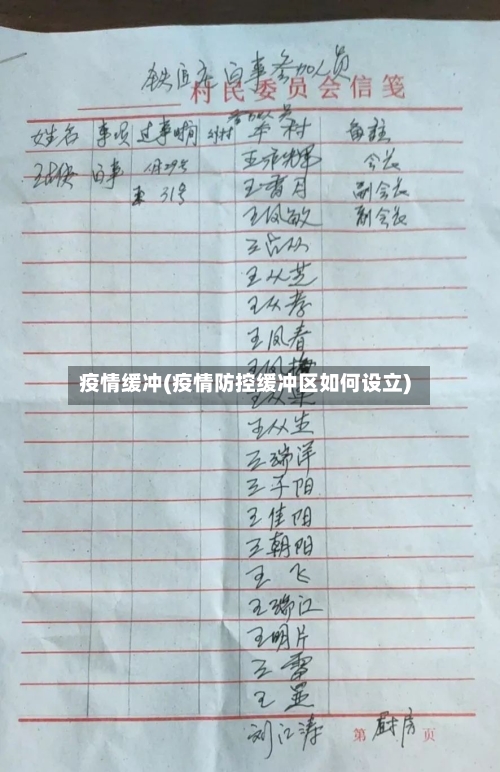 白事参加人员
村民委员会信笺
参加人员
姓名 事项 过事时间 外村 本村 备注
白事 29号 王 会长
31号 王香月 副会长
王凤敏 副会长
王占从
王从芝
王从孝
王凤春
疫情缓冲(疫情防控缓冲区如何设立)
王从生
王瑞洋
王子阳
王佳阳
王朝阳
王飞
王瑞江
王明片
王雷
王显
刘江涛 厨房
第 页